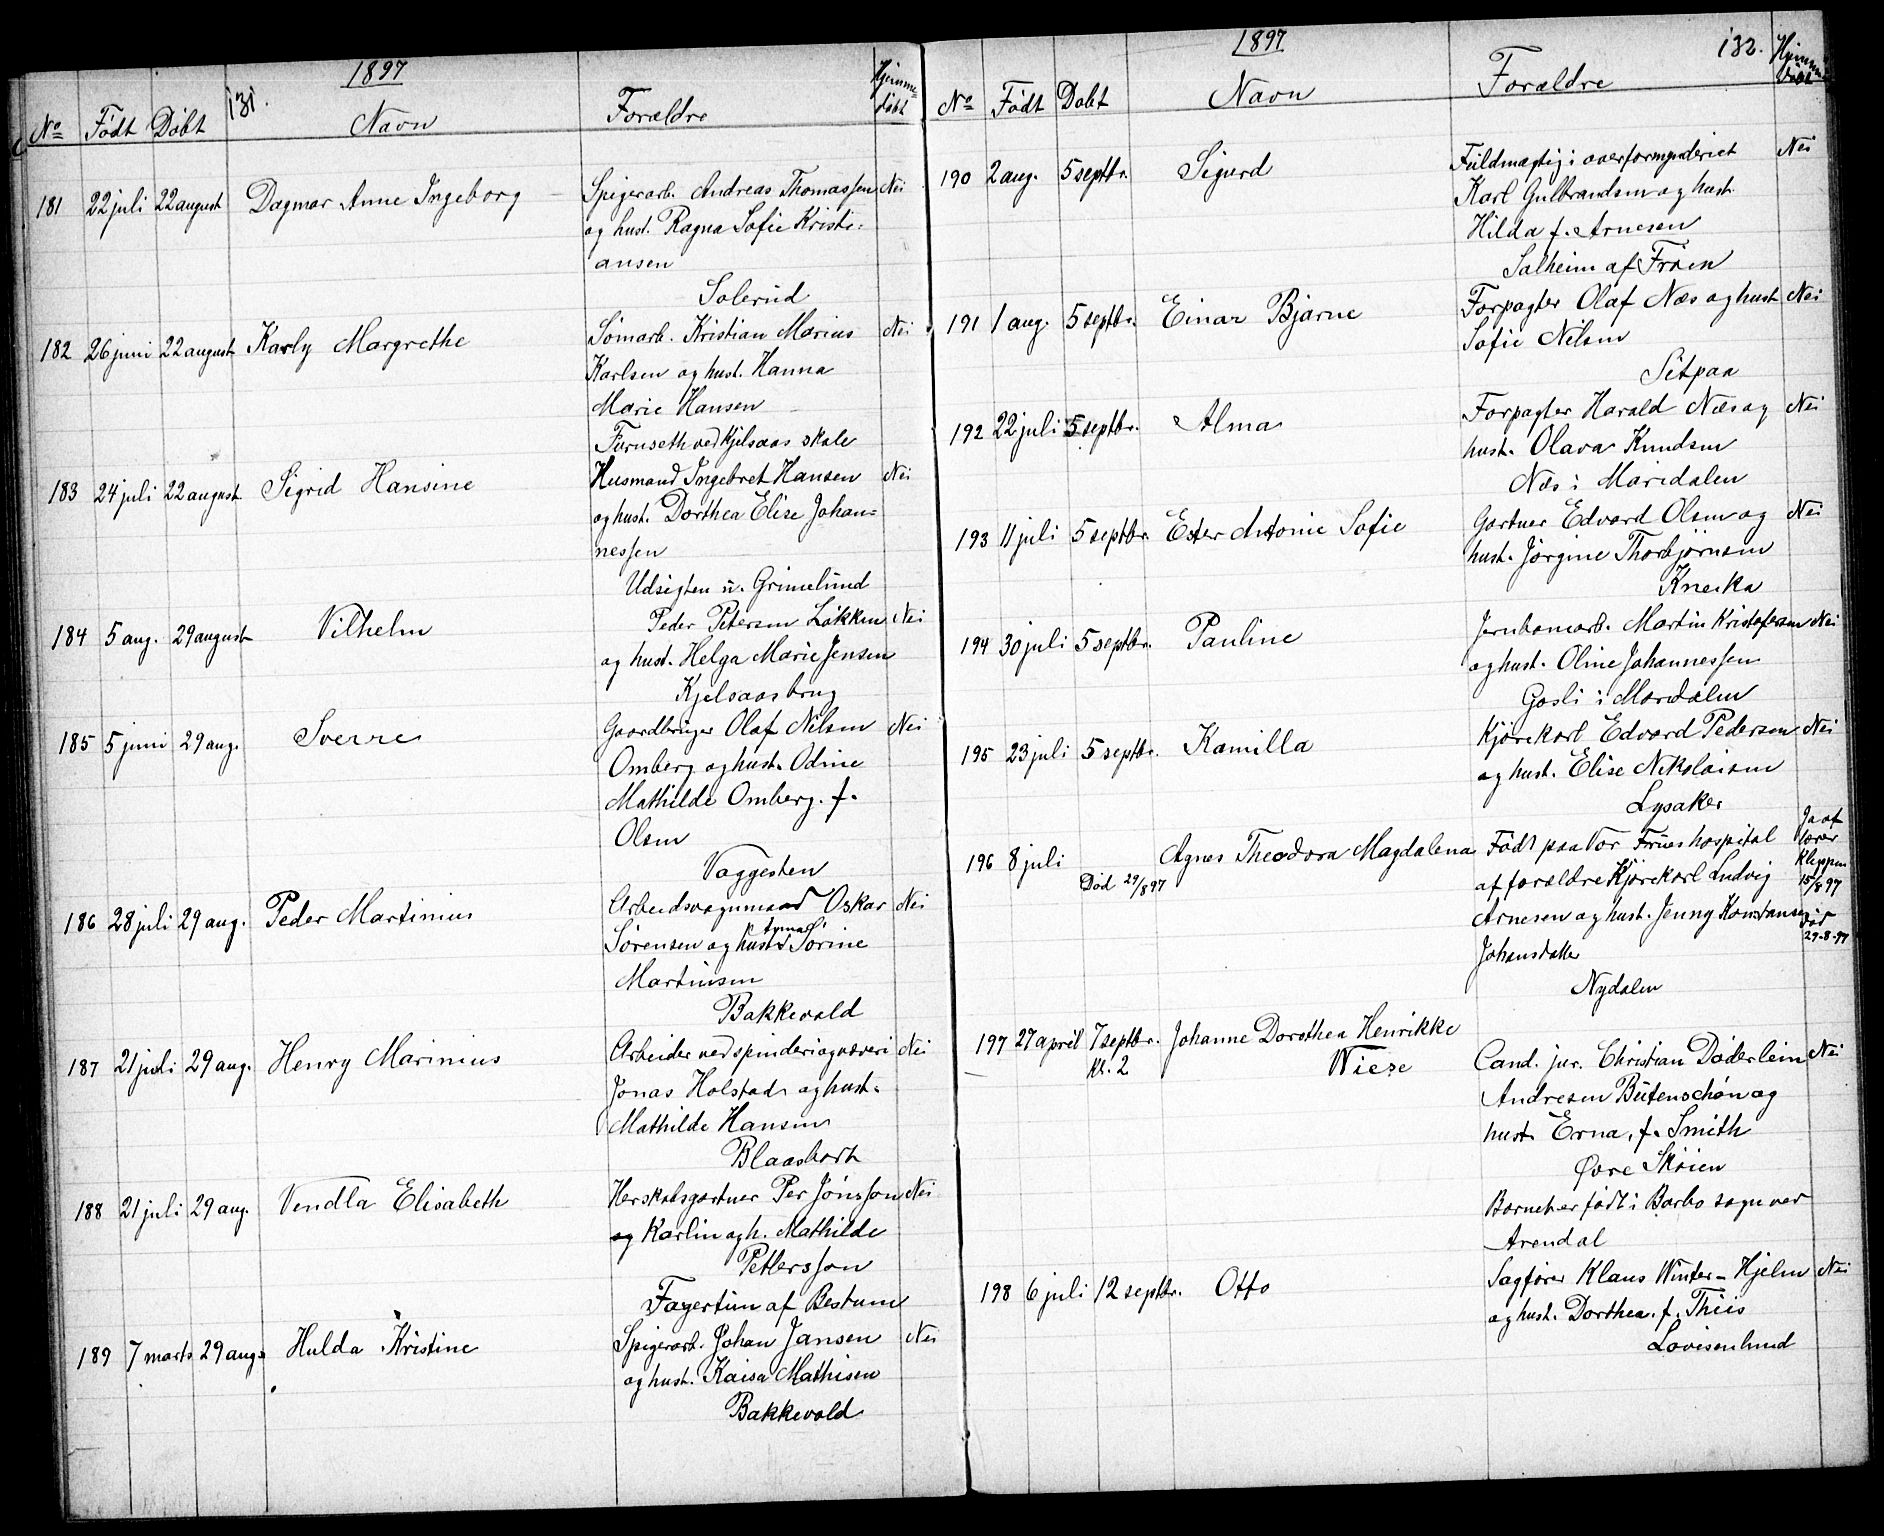 131.
1897
No Født Døbt Navn Forældre Hjemmedøbt
181 22 juli 22 august Dagmar Anne Ingeborg Spigerarb. Andreas Thomassen Nei
og hust. Ragna Sofie Kristi-
ansen
Solerud
182 26 juni 22 august Karly Margrethe Sömarb. Kristian Marius Nei
Karlsen og hust. Hanna
Marie Hansen
Furuseth ved Kjelsaas skole
183 24 juli 22 august Sigrid Hansine Husmand Ingebret Hansen Nei
og hust. Dorthea Elise Johan=
nessen
Udsigten u. Grimelund
184 5 aug. 29 august Vilhelm Peder Petersen Løkken Nei
og hust. Helga Marie Jensen
Kjelsaas brug
185 5 juni 29 aug. Sverre Gaardbruger Olaf Nilsen Nei
Omberg og hust. Odine
Mathilde Omberg. f.
Olsen
Vaggesten
186 28 juli 29 aug. Peder Martinius Arbeidsvognmand Oskar Nei
Sørensen og hust. Sörine
Martinsen
Bakkevold
187 21 juli 29 aug. Henry Marinius Arbeider ved spinderi og væveri Nei
Jonas Holstad og hust.
Mathilde Hansen
Blaasbort
188 21 juli 29 aug. Vendla Elisabeth Herskabsgartner Per Jónsson Nei
og Karlin og h. Mathilde
Pettersson
Fagertun af Bestum
189 7 marts 29 aug. Hulda Kristine Spigerarb. Johan Jansen Nei
og hust. Kaisa Mathisen
Bakkevold
1897
132.
No Født Døbt Navn Forældre Hjemmedøbt
190 2 aug. 5 septbr. Sigurd Fuldmægtig i overformynderiet Nei
Karl Gulbrandsen og hust.
Hilda f. Arnesen
Solheim af Frøen
191 1 aug. 5 septbr. Einar Bjarne Forpagter Olaf Næs og hust Nei
Sofie Nilsen
Sitpaa
192 22 juli 5 septbr. Alma Forpagter Harald Næs og Nei
hust. Olava Knudsen
Næs i Maridalen
193 11 juli 5 septbr. Ester Antonie Sofie Gartner Edvard Olsen og Nei
hust. Jörgine Thorbjörnsen
Kneika
194 30 juli 5 septbr. Pauline Jernbanearb. Martin Kristofersen Nei
og hust. Oline Johannessen
Gasli i Maridalen
195 23 juli 5 septbr. Kamilla Kjørekarl Edvard Pedersen Nei
og hust. Elise Nikolaisen
Lysaker
196 8 juli Død 29/8 97 Agnes Theodora Magdalena Født paa Vor Frues hospital Ja af
lærer
Kleppen
15/8 97
af forældre Kjørekarl Ludvig
Arnesen og hust. Jenny Konstanse
Død
29-8-97
Johansdatter
Nydalen
197 27 april 7 septbr. Kl. 2 Johanne Dorothea Henrikke
Wiese Cand. jur. Christian Døderlein Nei
Andresen Bütenschøn og
hust. Erna, f. Smith
Øvre Skøien
Barnet er født i Barbo sogn ved
Arendal
198 6 juli 12 septbr. Otto Sagfører Klaus Winter-Hjelm Nei
og hust. Dorthea. f. Thiis
Lovisenlund